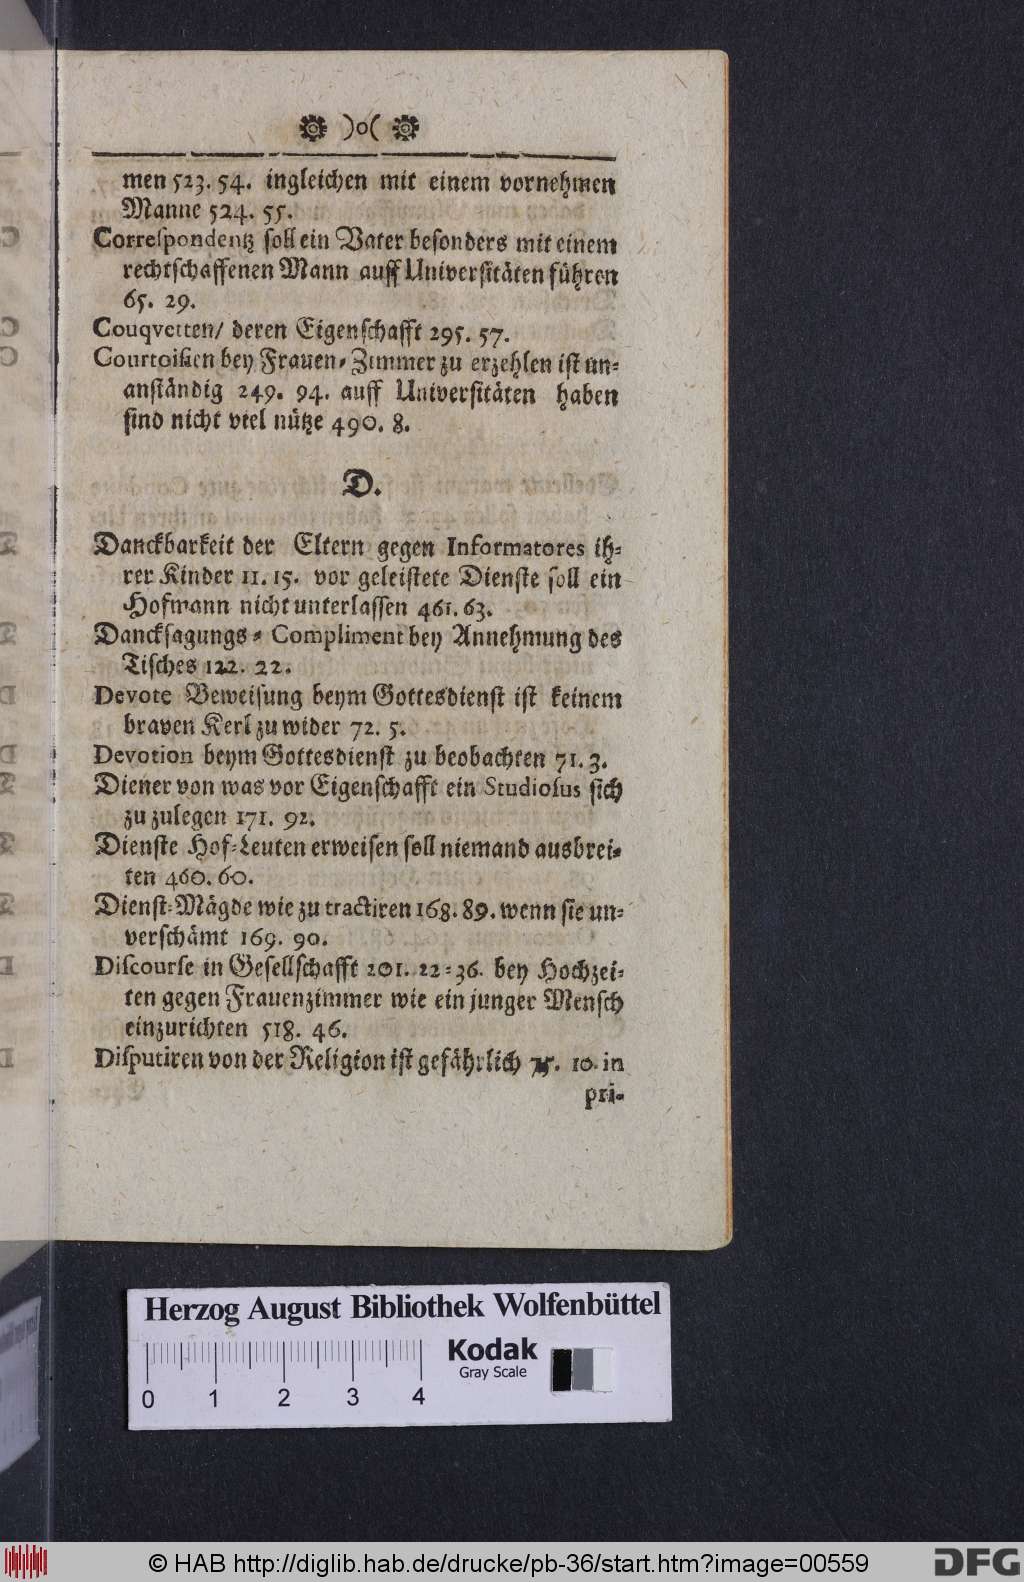 )o(
men 523. 54. ingleichen mit einem vornehmen
Manne 524. 55.
Correspondentz soll ein Vater besonders mit einem
rechtschaffenen Mann auff Universitäten führen
65. 29.
Couqvetten/ deren Eigenschafft 295. 57.
Courtoisien bey Frauen-Zimmer zu erzehlen ist un-
anständig 249. 94. auff Universitäten haben
sind nicht viel nütze 490. 8.
D.
Danckbarkeit der Eltern gegen Informatores ih-
rer Kinder 11. 15. vor geleistete Dienste soll ein
Hofmann nicht unterlassen 461. 63.
Dancksagungs-Compliment bey Annehmung des
Tisches 122. 22.
Devote Beweisung beym Gottesdienst ist keinem
braven Kerl zu wider 72. 5.
Devotion beym Gottesdienst zu beobachten 71. 3.
Diener von was vor Eigenschafft ein Studiosus sich
zu zulegen 171. 92.
Dienste Hof-Leuten erweisen soll niemand ausbrei-
ten 460. 60.
Dienst-Mägde wie zu tractiren 168. 89. wenn sie un-
verschämt 169. 90.
Discourse in Gesellschafft 201. 22-36. bey Hochzei-
ten gegen Frauenzimmer wie ein junger Mensch
einzurichten 518. 46.
Disputiren von der Religion ist gefährlich 75. 10. in
pri-
Herzog August Bibliothek Wolfenbüttel
Kodak
Gray Scale
0 1 2 3 4
© HAB http://diglib.hab.de/drucke/pb-36/start.htm?image=00559
DFG